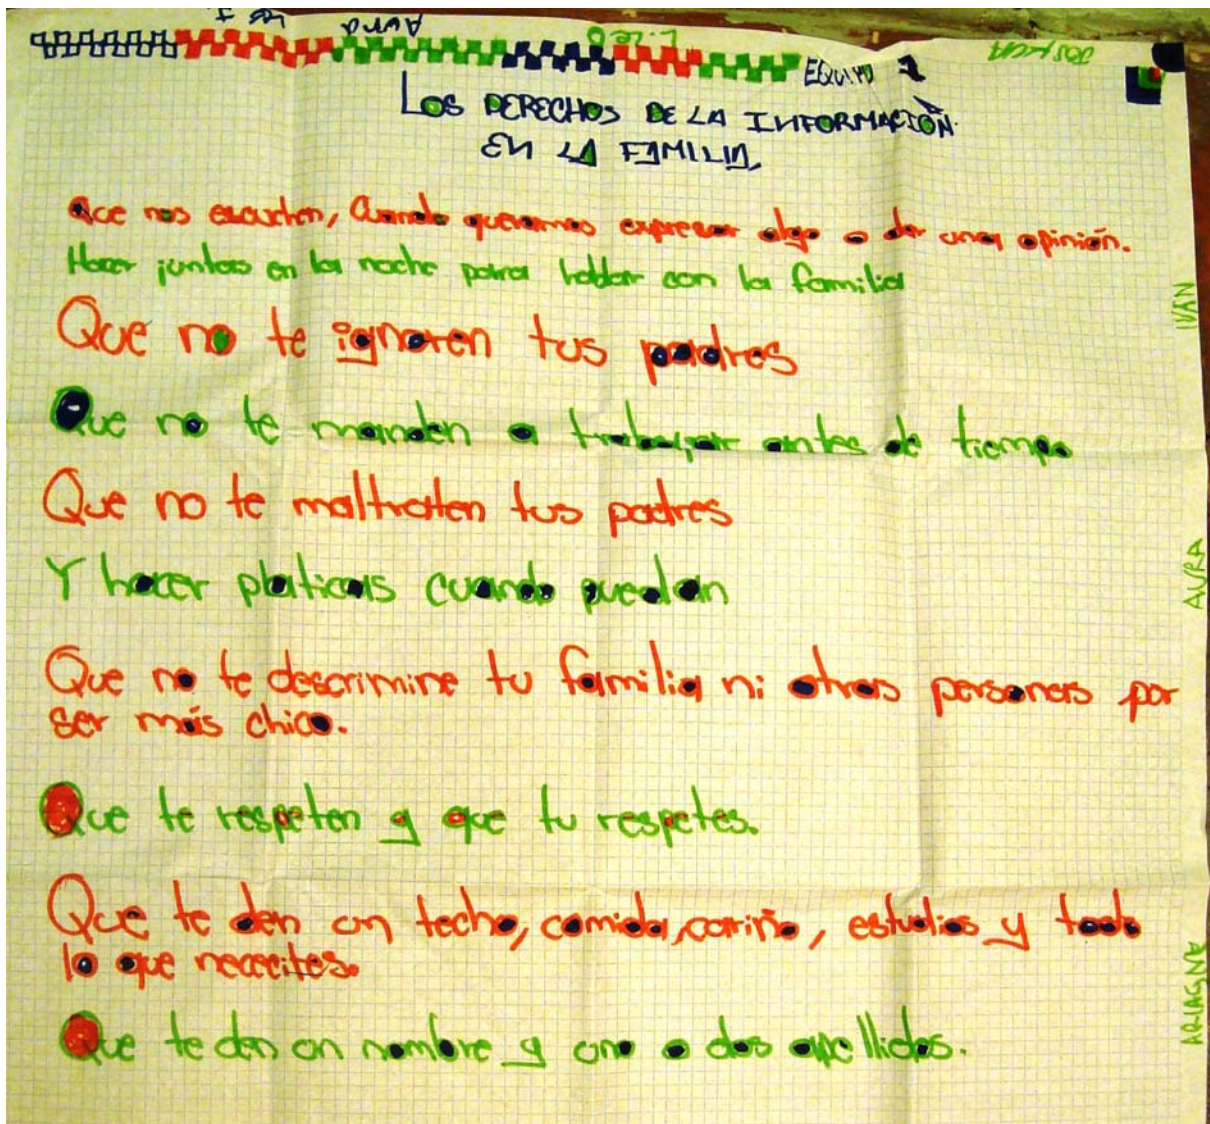 AURA
EQUIPO 1
LOS DERECHOS DE LA INFORMACIÓN
EN LA FAMILIA
Que nos escuchen, Cuando queramos expresar algo o dar una opinión.
Hacer juntas en la noche para hablar con la familia
Que no te ignoren tus padres
Que no te manden a trabajar antes de tiempo
Que no te maltraten tus padres
Y hacer platicas cuando puedan
Que no te descrimine tu familia ni otras personas por
ser más chico.
Que te respeten y que tu respetes.
Que te den un techo, comida, cariño, estudios y todo
lo que nececites.
Que te den un nombre y uno o dos apellidos.
IVÁN
AURA
ARIAGNA